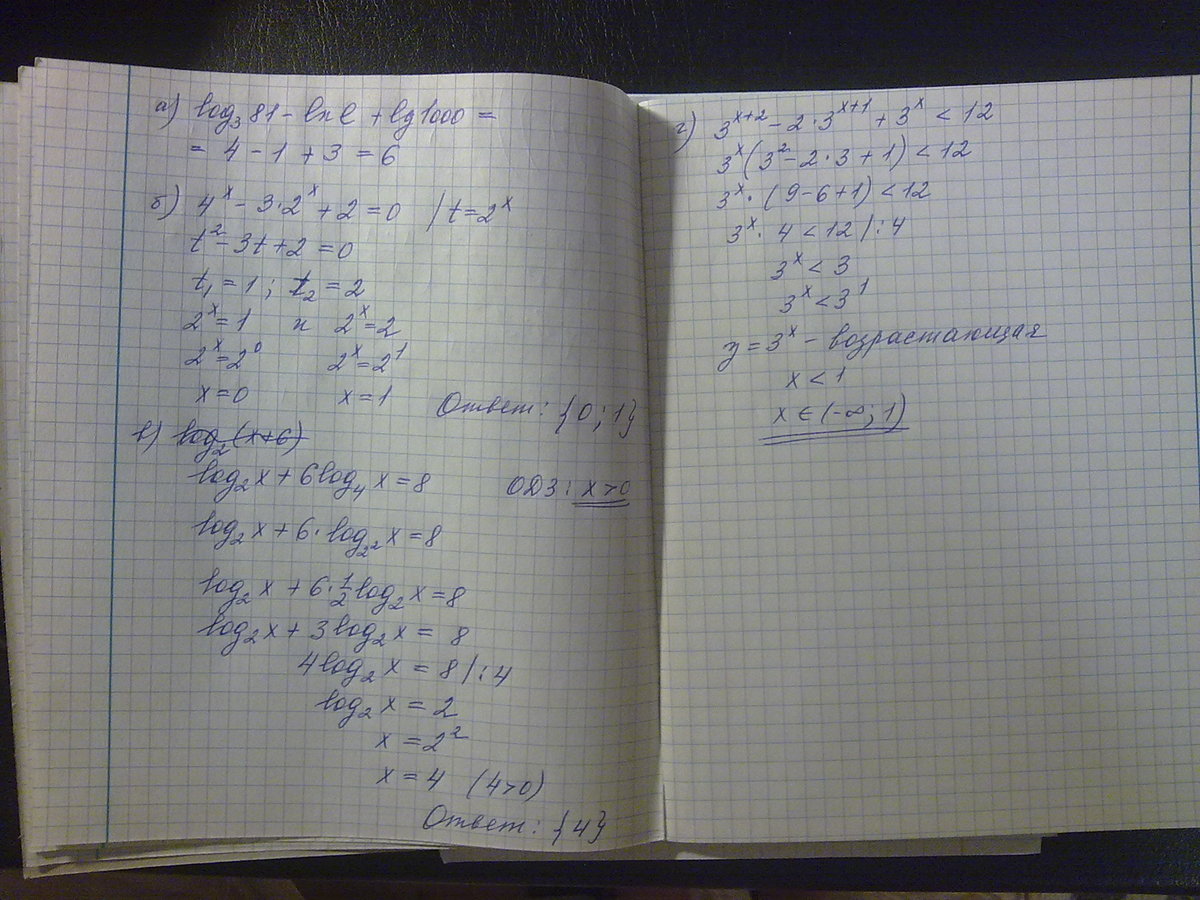 а) log₃81 - ln e + lg1000 =
= 4 - 1 + 3 = 6
б) 4ˣ - 3·2ˣ + 2 = 0 / t = 2ˣ
t² - 3t + 2 = 0
t₁ = 1 ; t₂ = 2
2ˣ = 1 и 2ˣ = 2
2ˣ = 2⁰ 2ˣ = 2¹
x = 0 x = 1
Ответ: {0; 1}
в) log₂(x+6)
log₂x + 6log₄x = 8 ОДЗ: x > 0
log₂x + 6·log₂²x = 8
log₂x + 6·1/2 log₂x = 8
log₂x + 3log₂x = 8
4log₂x = 8 /:4
log₂x = 2
x = 2²
x = 4 (4>0)
Ответ: {4}
г) 3ˣ⁺² - 2·3ˣ⁺¹ + 3ˣ < 12
3ˣ(3² - 2·3 + 1) < 12
3ˣ·(9 - 6 + 1) < 12
3ˣ·4 < 12 /:4
3ˣ < 3
3ˣ < 3¹
y = 3ˣ - возрастающая
x < 1
x ∈ (-∞; 1)